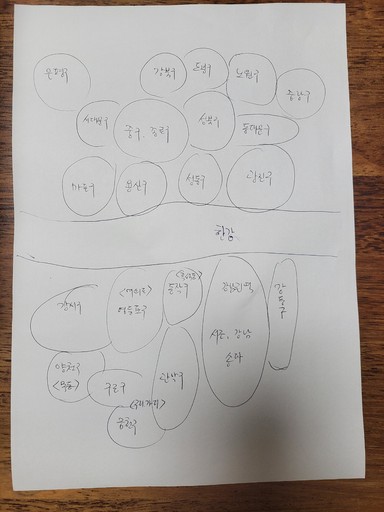 은평구
강북구
도봉구
노원구
중랑구
서대문구
중구, 종로구
성북구
동대문구
마포구
용산구
성동구
광진구
한강
강서구
<여의도>
영등포구
동작구
강남3구
서초, 강남
송파
강동구
양천구
<목동>
구로구
관악구
금천구